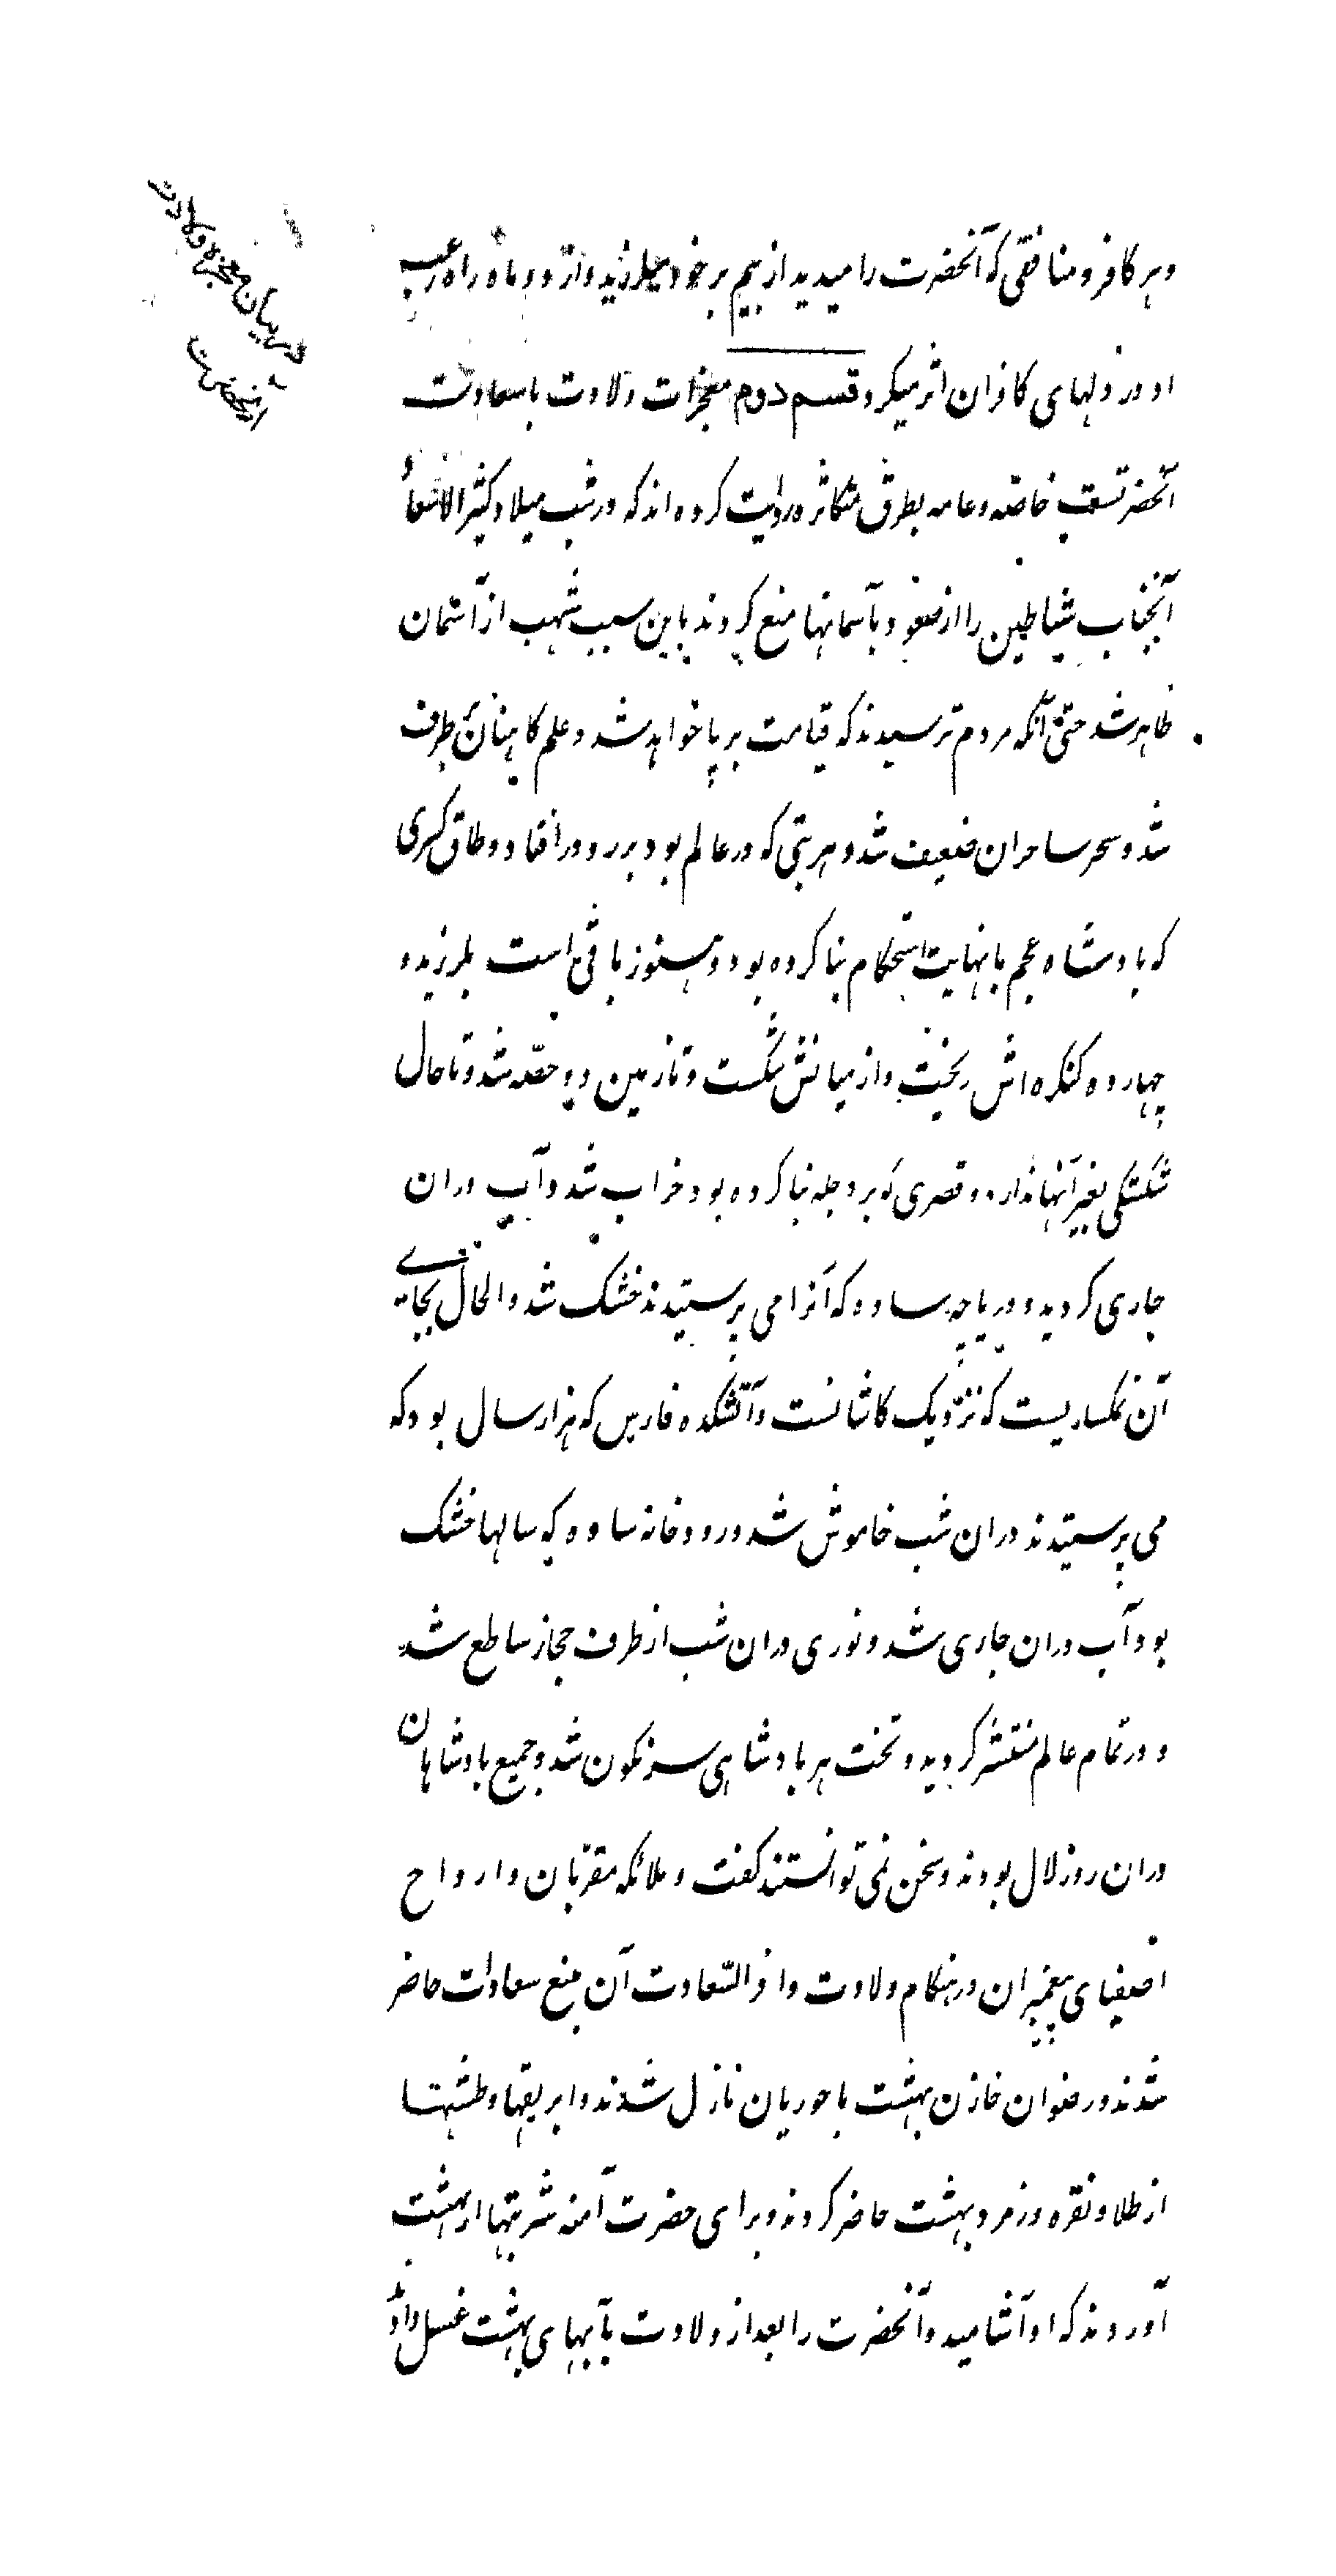 در بیان معجزه ولادت
آنحضرت
وہر کافر و منافقی کہ آنحضرت را میدید از بیم بر خود میلرزید و از دو ماہ راہ رعب
او در دلہای کافران اثر میکرد قسم دوم معجزات ولادت با سعادت
آنحضرتست خاصّہ و عامہ بطرق متکاثرہ روایت کردہ اند کہ در شب میلاد کثیر الاسعاد
آنجناب شیاطین را از صعود بآسمانہا منع کردند باین سبب شہب از آسمان
ظاہر شد حتّی آنکہ مردم ترسیدند کہ قیامت برپا خواہد شد و علم کاہنان بر طرف
شد و سحر ساحران ضعیف شد و ہر بتی کہ در عالم بود بر رو در افتاد و طاق کسری
کہ بادشاہ عجم با نہایت استحکام بنا کردہ بود و ہنوز باقی است بلرزید و
چہاردہ کنکرہ اش ریخت و از میانش شکست و تا زمین دو حصّہ شد و تا حال
شکستگی بغیر آنہا ندارد و قصری کہ بر دجلہ بنا کردہ بود خراب شد و آب دران
جاری کردید و دریاچہ ساوہ کہ آنرا می پرستیدند خشک شد و الحال بجاے
آن نمکساریست کہ نزدیک کاشانست و آتشکدہ فارس کہ ہزار سال بود کہ
می پرستیدند دران شب خاموش شد و رودخانہ ساوہ کہ سالہا خشک
بود آب دران جاری شد و نوری دران شب از طرف حجاز ساطع شد
و در تمام عالم منتشر کردید و تخت ہر بادشاہی سرنکون شد و جمیع بادشاہان
دران روز لال بودند و سخن نمی توانستند کفت و ملائکہ مقرّبان و ارواح
اصفیای پیغمبران در ہنکام ولادت وافر السّعادت آن منبع سعادات حاضر
شدند و رضوان خازن بہشت با حوریان نازل شدند و ابریقہا و طشتہا
از طلا و نقرہ و زمرد بہشت حاضر کردند و برای حضرت آمنہ شربتہا از بہشت
آوردند کہ او آشامید و آنحضرت را بعد از ولادت بآبہای بہشت غسل دادند